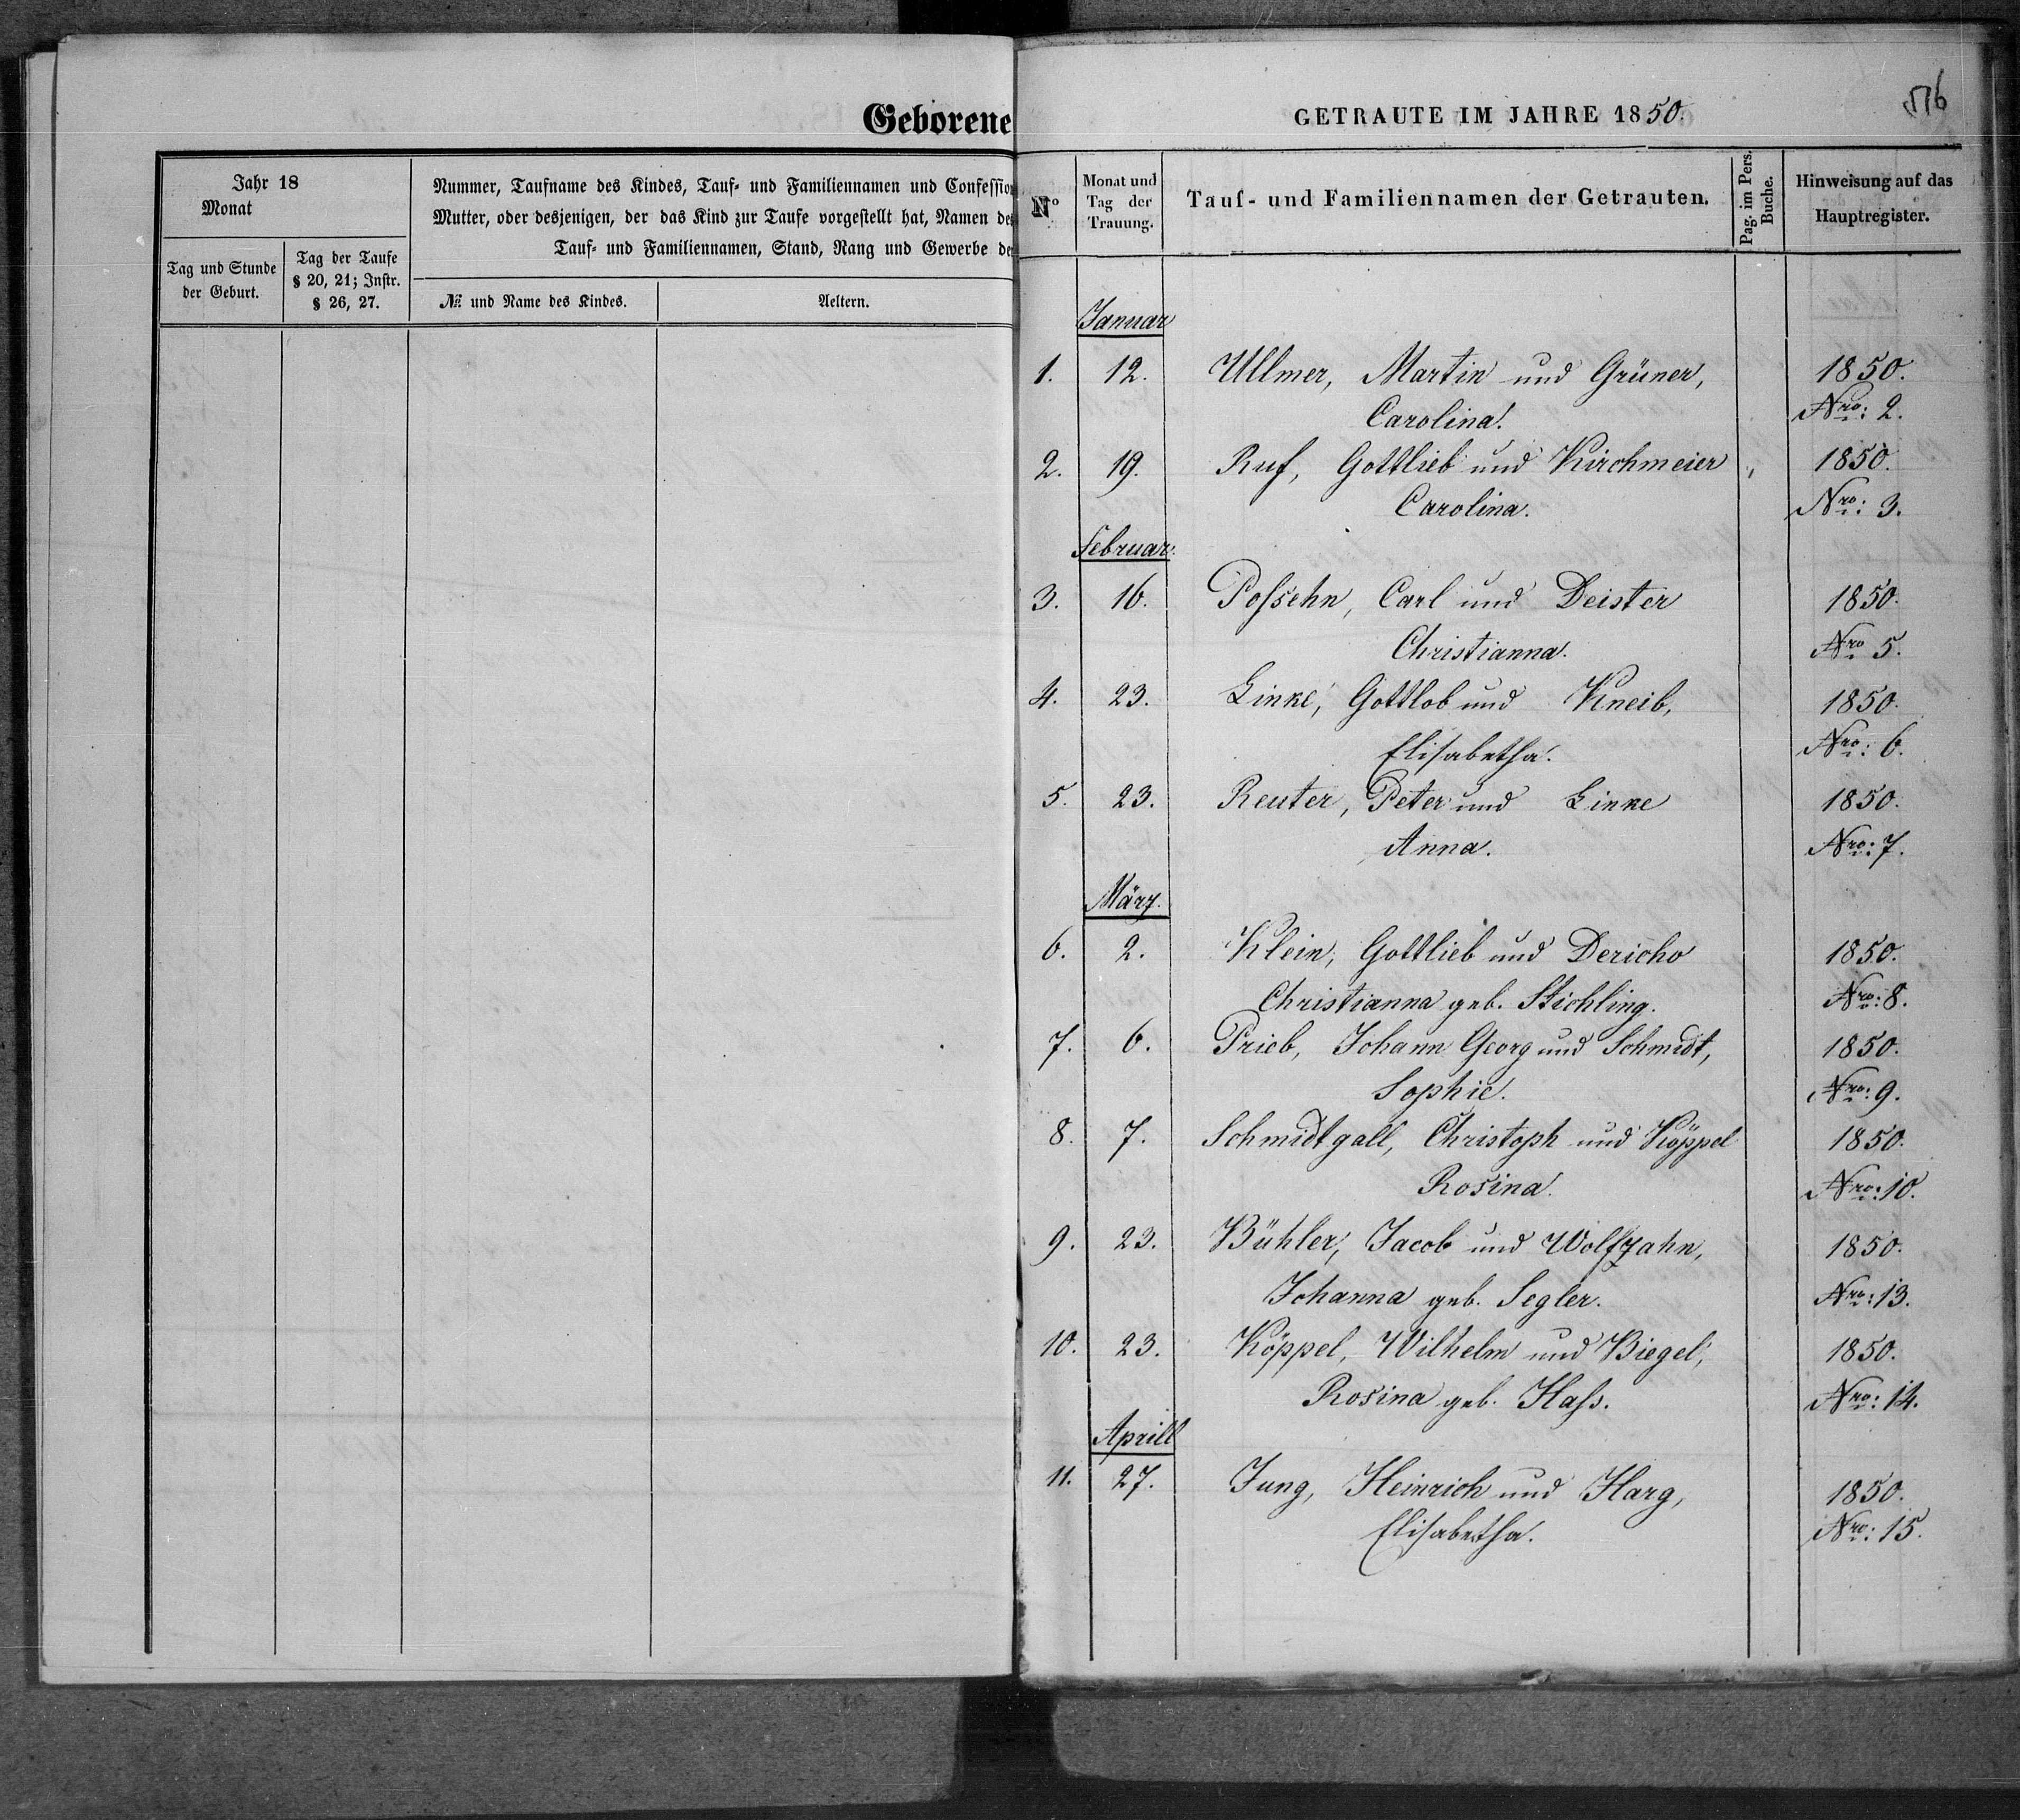 Geborene
Jahr 18
Monat
Nummer, Taufname des Kindes, Tauf- und Familiennamen und Confession
Mutter, oder desjenigen, der das Kind zur Taufe vorgestellt hat, Namen des
Tauf- und Familiennamen, Stand, Rang und Gewerbe der
Tag und Stunde
der Geburt.
Tag der Taufe
§ 20, 21; Instr.
§ 26, 27.
№ und Name des Kindes.
Aeltern.
GETRAUTE IM JAHRE 1850.
N°
Monat und
Tag der
Trauung.
Tauf- und Familiennamen der Getrauten.
Pag. im Pers.
Buche.
Hinweisung auf das
Hauptregister.
Januar
1. 12. Ullmer, Martin und Grüner, 1850.
Carolina. Nro: 2.
2. 19. Ruf, Gottlieb und Kirchmeier 1850.
Carolina. Nro: 3.
Februar.
3. 16. Poſsehn, Carl und Deister 1850.
Christianna. Nro 5.
4. 23. Linke, Gottlob und Kneib, 1850.
Elisabetha. Nro: 6.
5. 23. Reuter, Peter und Linke 1850.
Anna. Nro: 7.
März.
6. 2. Klein, Gottlieb und Dericho 1850.
Christianna geb. Stichling. Nro: 8.
7. 6. Prieb, Johann Georg und Schmidt, 1850.
Sophie. Nro: 9.
8. 7. Schmidtgall, Christoph und Köppel 1850.
Rosina. Nro: 10.
9. 23. Bühler, Jacob und Wolfzahn, 1850.
Johanna geb. Segler. Nro: 13.
10. 23. Köppel, Wilhelm und Biegel, 1850.
Rosina geb. Haſs. Nro: 14.
Aprill
11. 27. Jung, Heinrich und Harg, 1850.
Elisabetha. Nro: 15.